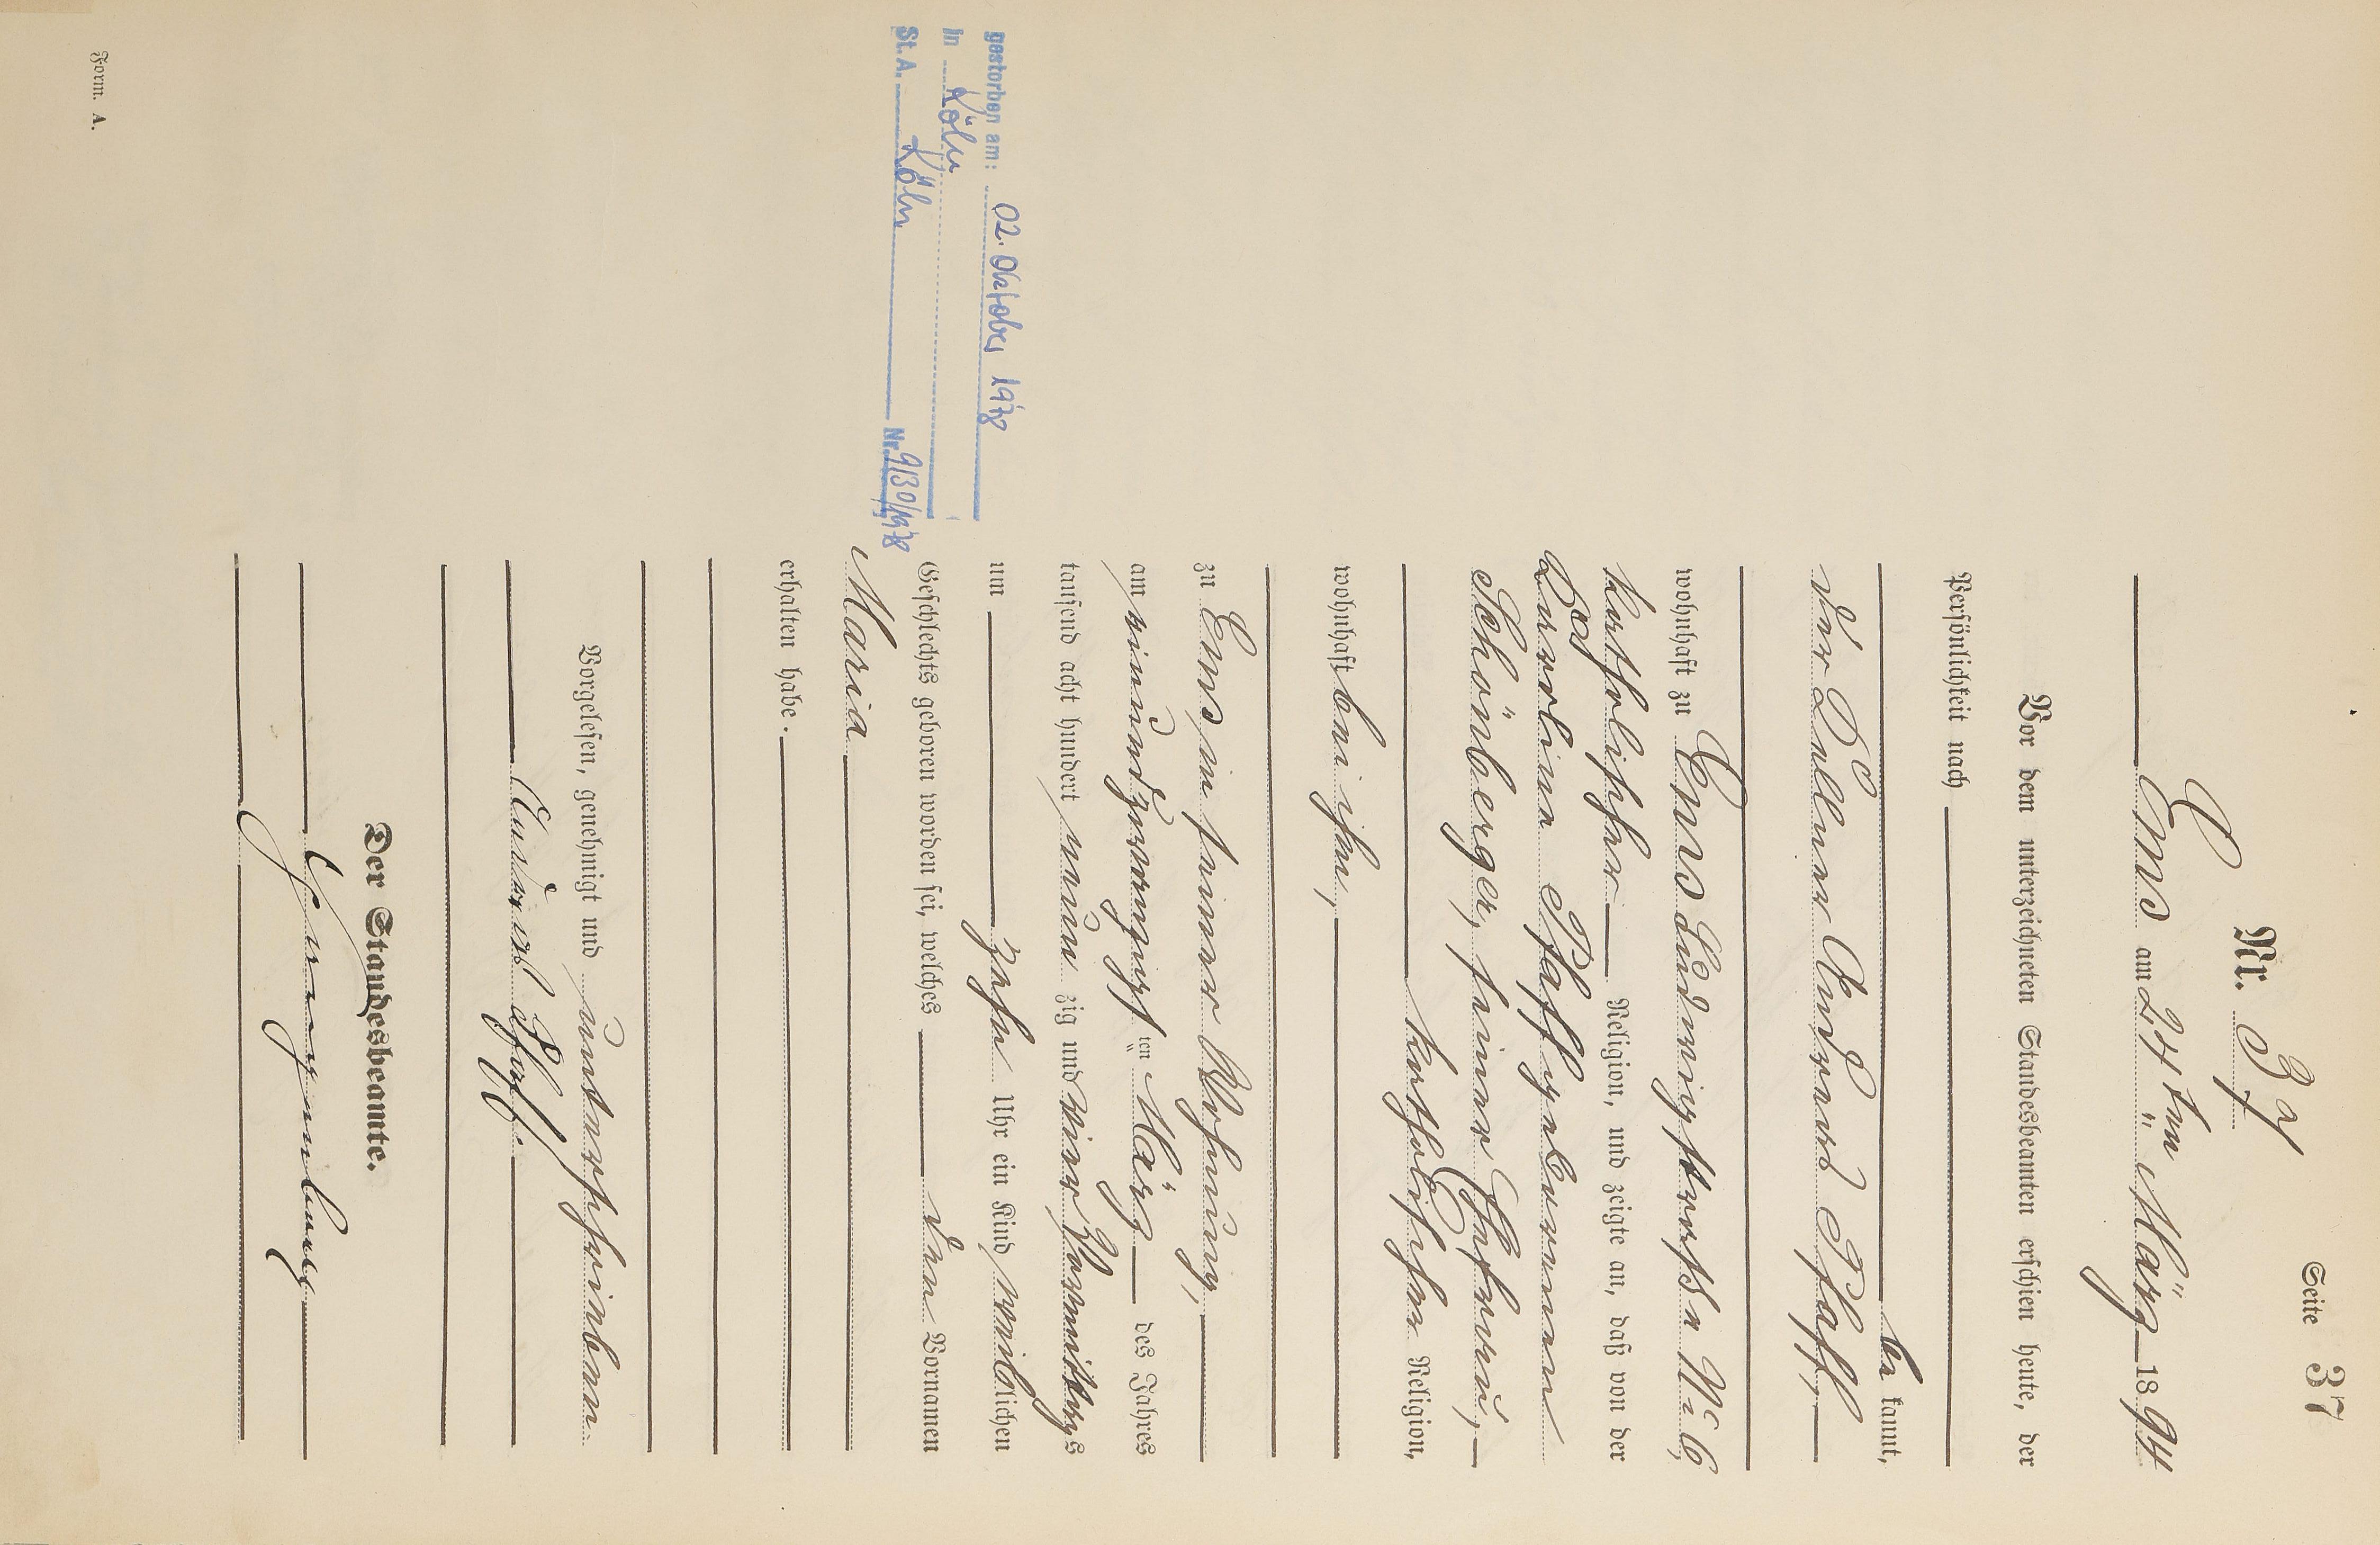 Seite 37
Nr. 37
Ems am 24ten März 1894
Vor dem unterzeichneten Standesbeamten erschien heute, der
Persönlichkeit nach
be kannt,
der Andreas Pfaff,
wohnhaft zu Ems Ludwigstraße No 6,
katholischer Religion, und zeigte an, daß von der
Pfaff geborenen
Schönberger, seiner Ehefrau,
katholischer Religion,
wohnhaft bei ihm,
zu Ems in seiner Wohnung,
am einundzwanzigsten März des Jahres
tausend acht hundert neun zig und vier Vormittags
um zehn Uhr ein Kind weiblichen
Geschlechts geboren worden sei, welches den Vornamen
Maria
erhalten habe.
Vorgelesen, genehmigt und unterschrieben
Andreas Pfaff.
Der Standesbeamte.
gestorben am: 02. Oktober 1978
in Köln
St. A. Köln Nr. 9130/1978
Form. A.